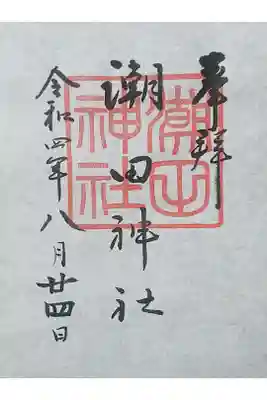 奉拝
潮田神社
潮田神社
令和四年八月廿四日